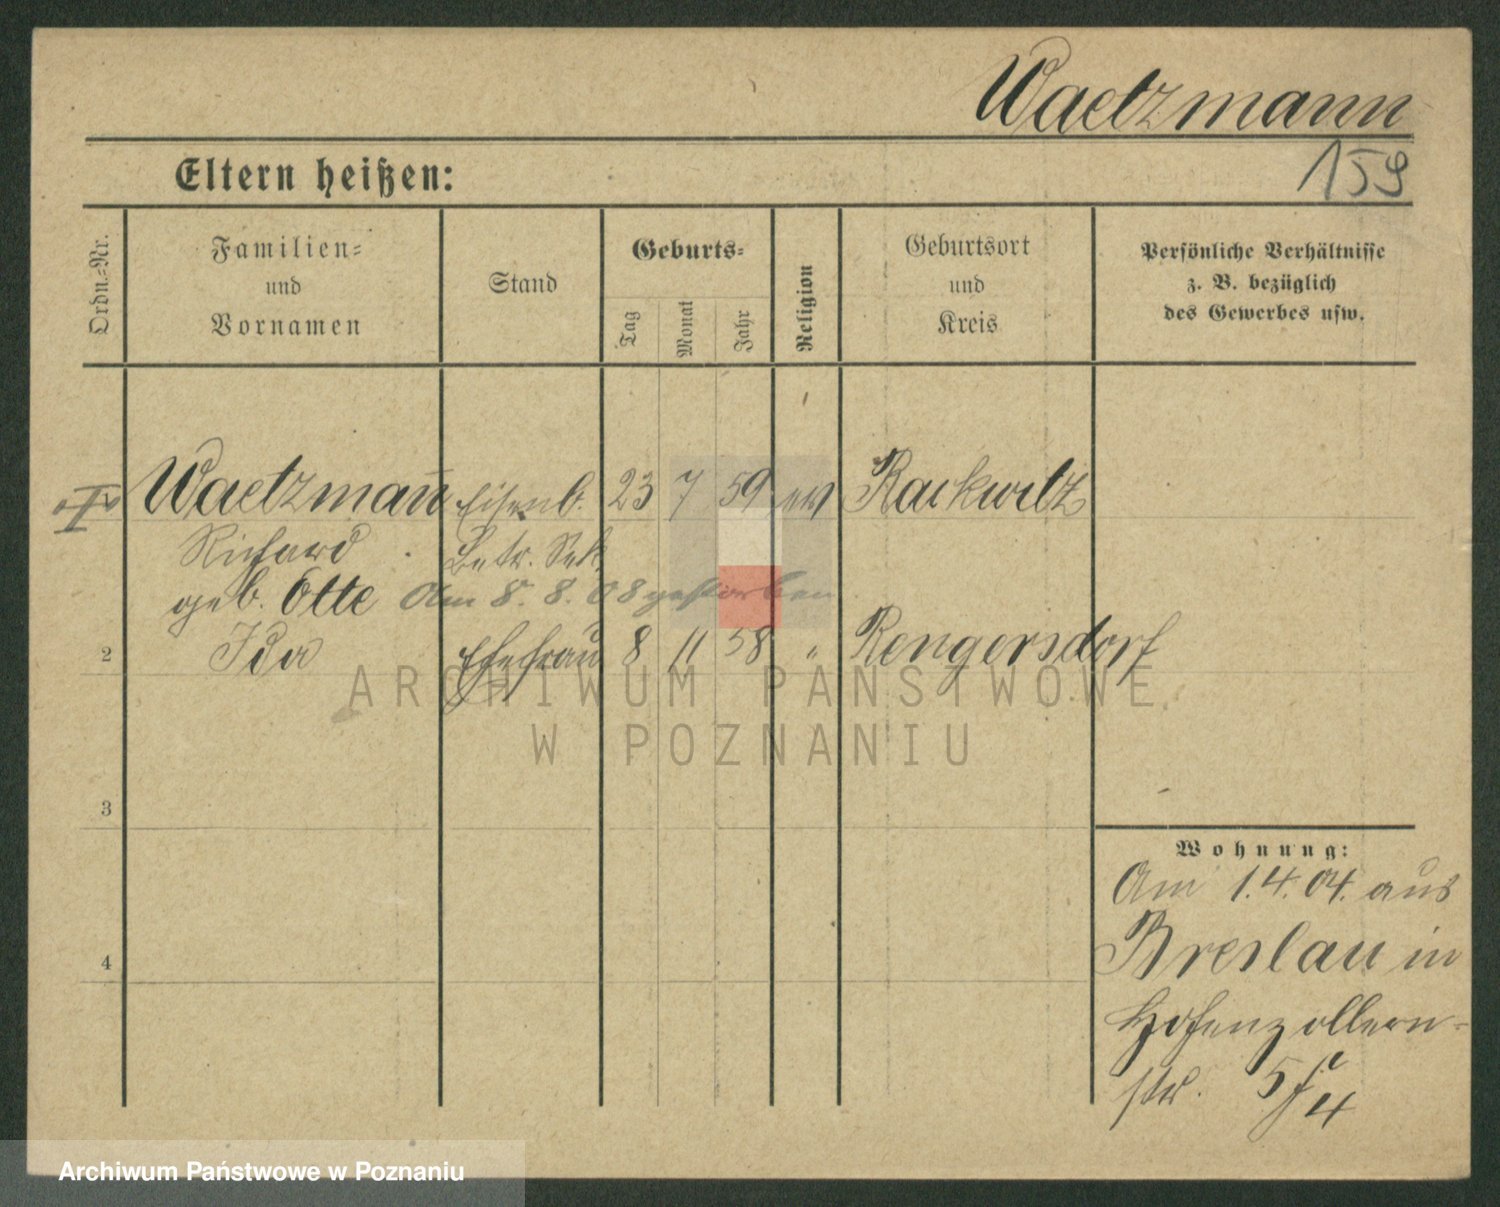 Waetzmann
159
Eltern heißen:
Ordn.-Nr.
Familien-
und
Vornamen
Stand
Geburts-
Tag
Monat
Jahr
Religion
Geburtsort
und
Kreis
Persönliche Verhältnisse
z. B. bezüglich
des Gewerbes usw.
Waetzman̄ Eisenb. 23 7 59 ev Rackwitz
Richard Betr. Sek.
geb. Otte Am 8. 8. 08 gestorben
2 Ida Ehefrau 8 11 58 " Rengersdorf
ARCHIWUM PAŃSTWOWE
W POZNANIU
3
Wohnung:
Am 1.4.04. aus
Breslau in
Hohenzollern-
str.
4
Archiwum Państwowe w Poznaniu